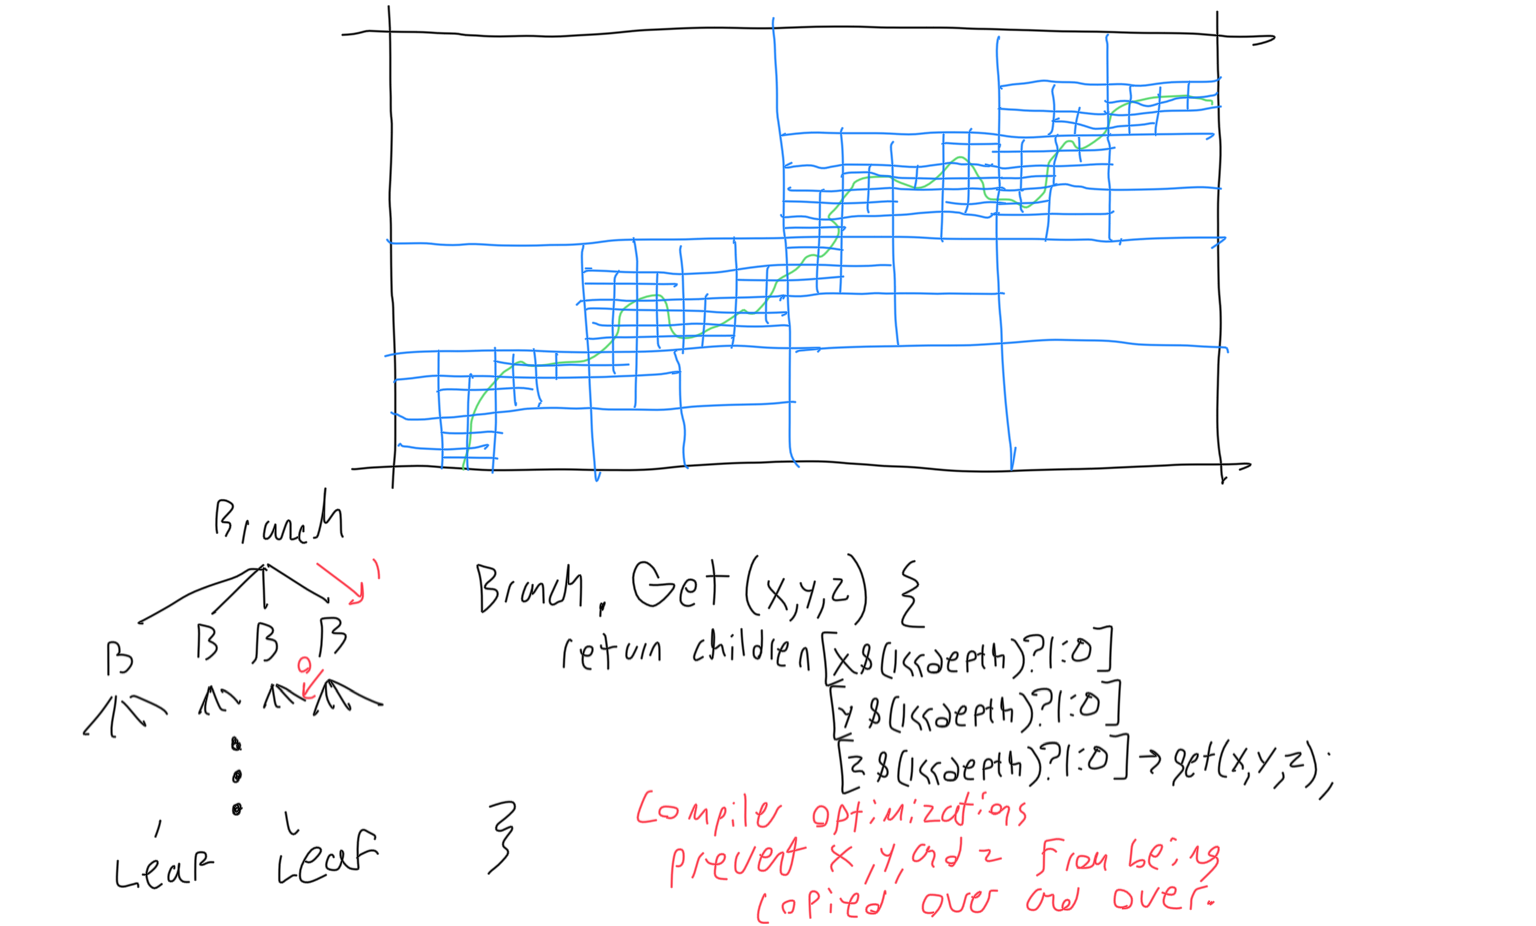 Branch
1
B B B B
0
Leaf Leaf
Branch. Get (x,y,z) {
return children [x & (1<<depth)?1:0]
[y & (1<<depth)?1:0]
[z & (1<<depth)?1:0] → get(x,y,z);
}
Compiler optimizations
prevent x, y, and z from being
copied over and over.